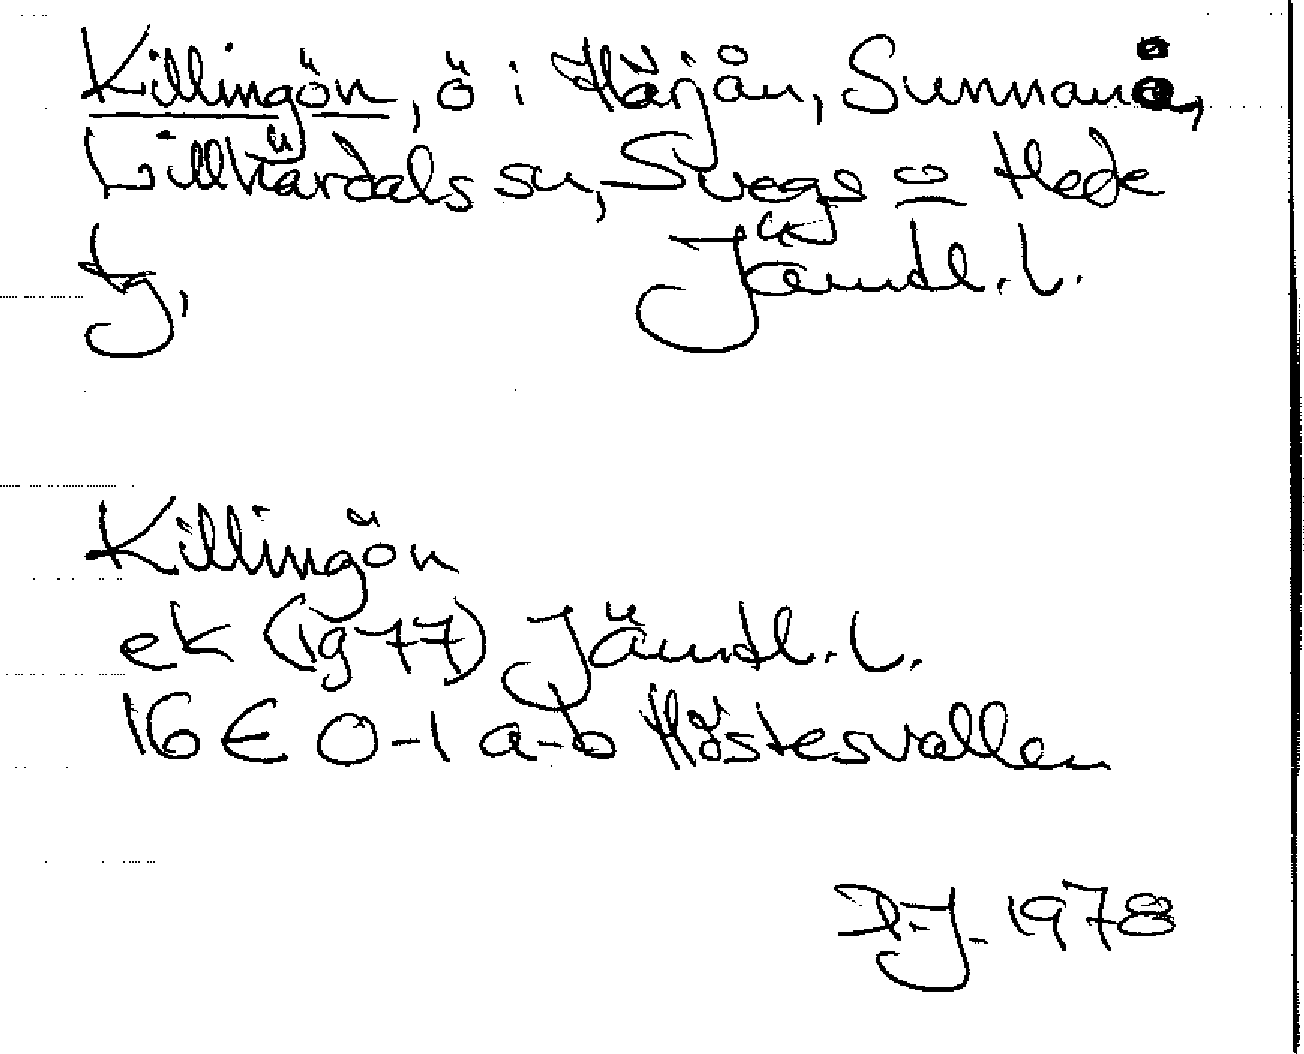 Killingön, ö i Härjån, Sunnanå,
Lillhärdals sn, Svegs o Hede
tg, Jämtl. l.
Killingön
ek (1977) Jämtl. l.
16 E 0-1 a-b Höstesvallen
D.J. 1978